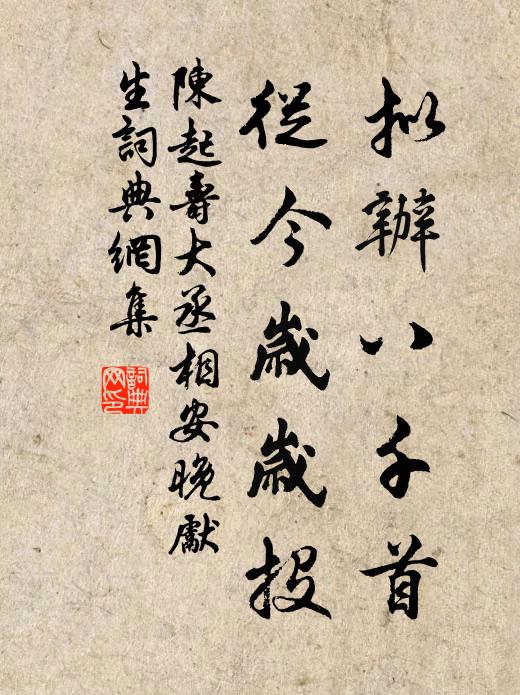 拟辦八千首
從今歲歲投
陳起壽大丞相安晚獻
生詞典網集
詞典網印